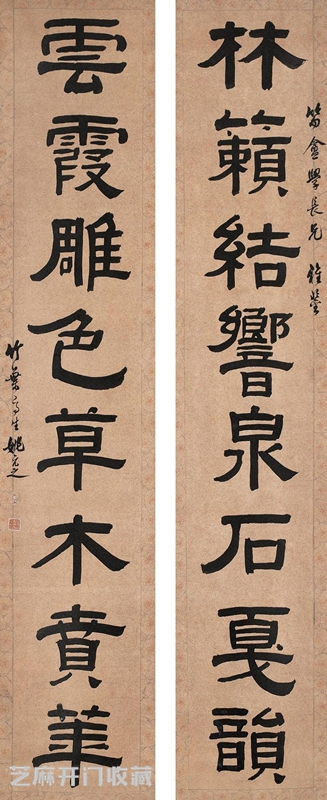 盦學長兄 雅鑒
林籟結響泉石戛韻
雲霞雕色草木賁華
竹葉亭生姚元之
芝麻开门收藏